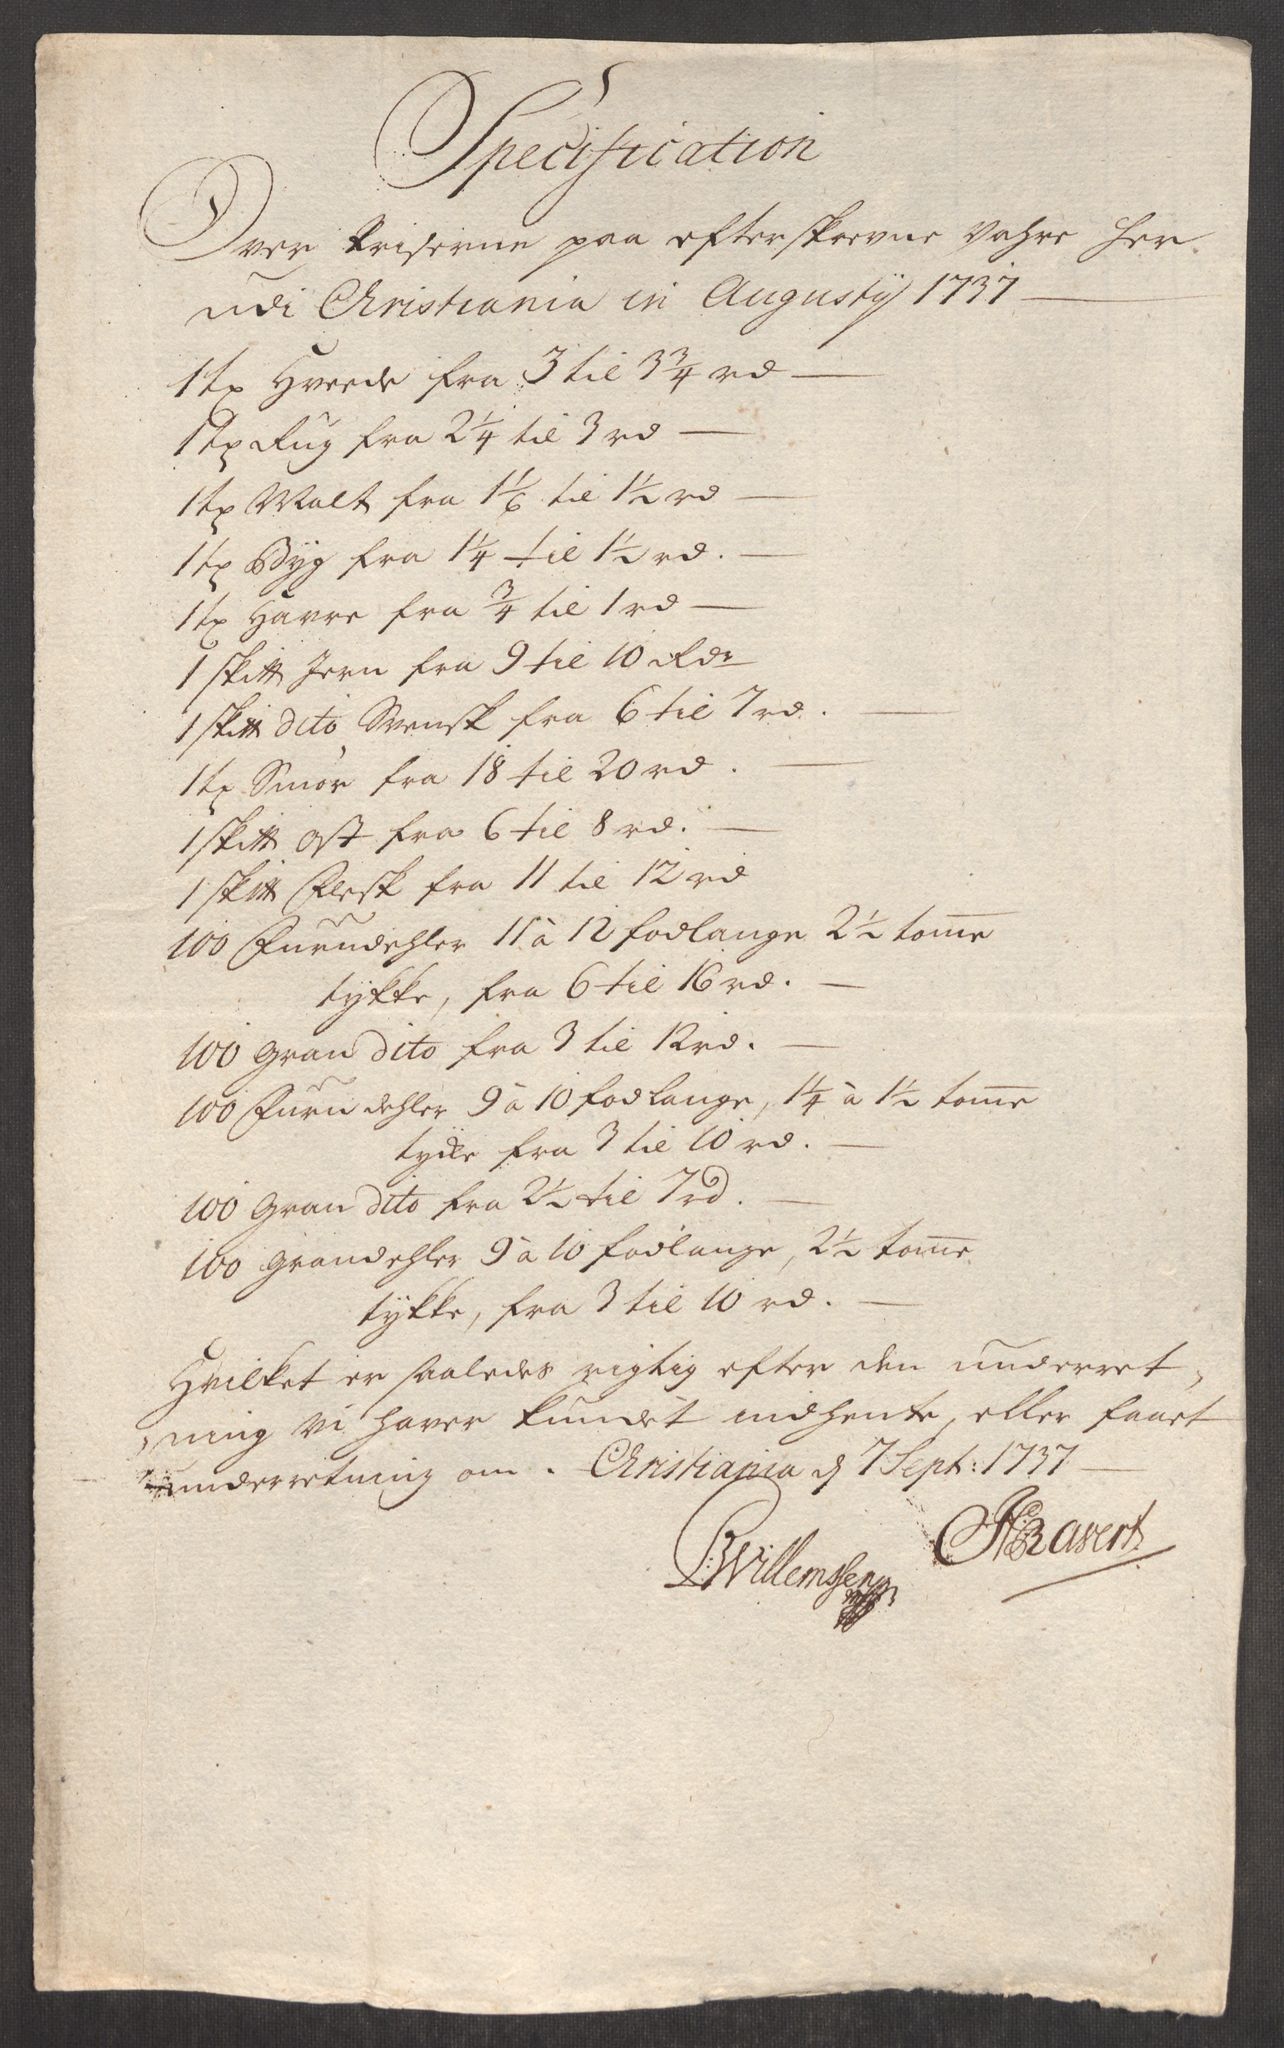 Specification
Over Priserne paa efterskrevne Vahre her
udi Christiania in Augustij 1737
1 tø Hvede fra 3 til 3 3/4 rd
1 tø Rug fra 2 1/4 til 3 rd
1 tø Malt fra 1 1/6 til 1 1/2 rd
1 tø Byg fra 1 1/4 til 1 1/2 rd.
1 tø Havre fra 3/4 til 1 rd
1 skitt Jern fra 9 til 10 Rdr
1 skitt dito Svensk fra 6 til 7 rd.
1 tø Smør fra 18 til 20 rd.
1 skitt ost fra 6 til 8 rd.
1 skitt Flesk fra 11 til 12 rd
100 Furudehler 11 à 12 fodlange 2 1/2 tom̅e
tykke, fra 6 til 16 rd.
100 Gran dito fra 3 til 12 rd.
100 Furu dehler 9 à 10 fodlange, 1 1/4 à 1 1/2 tom̅e
tycke fra 3 til 10 rd.
100 Gran dito fra 2 1/2 til 7 rd.
100 Grandehler 9 à 10 fodlange, 2 1/2 tom̅e
tykke, fra 3 til 10 rd.
Hvilket er saaledes rigtig efter den underret,
,ning vi haver kundet indhente, eller faaet
underretning om. Christiania d 7 Sept: 1737
BWillemssen HRavert